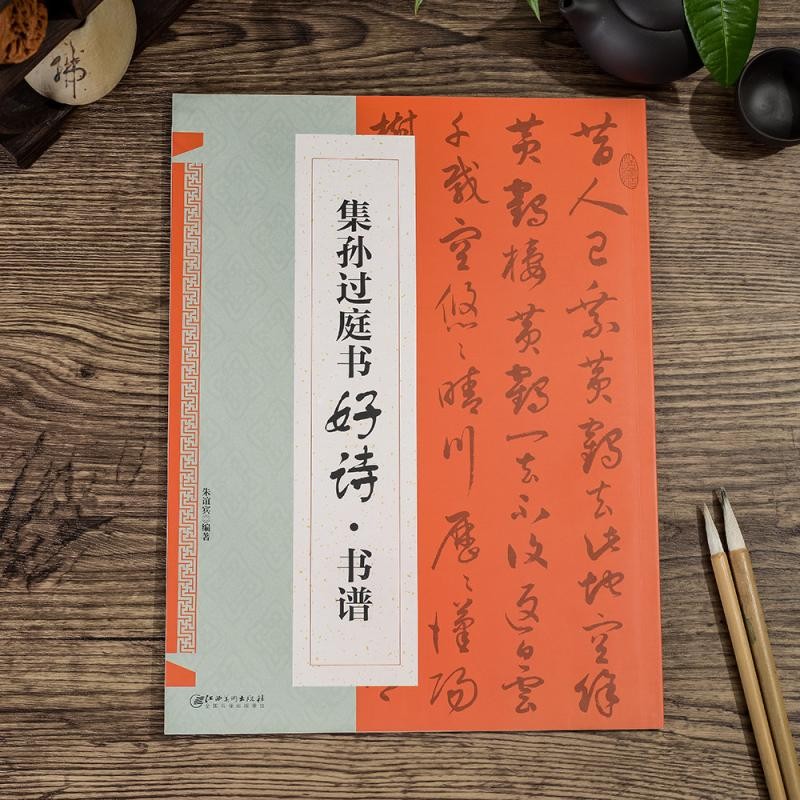 昔人已乘黄鹤去此地空余
黄鹤楼黄鹤一去不复返白云
千载空悠悠晴川历历汉阳
树
集孙过庭书好诗·书谱
朱谊宾◎编著
江西美术出版社
全国百佳出版单位